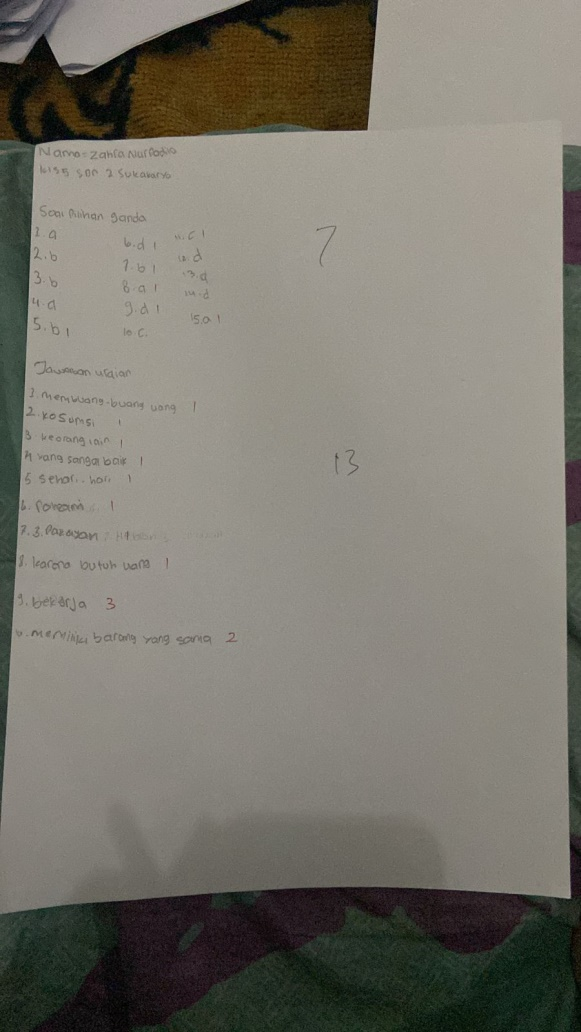 Nama = Zahra Nur
SDN 2 Sukakarya
Soal Pilihan ganda
1. a
2. b
3. b
4. a
5. b 1
6. d 1
7. b 1
8. a 1
9. d 1
10. c.
11. c 1
12. d
13. d
14. d
15. a 1
7
Jawaban uraian
1. membuang-buang uang 1
2. kosumsi 1
3 keorang lain 1
4 yang sangat baik 1
5 sehari-hari 1
6. 1
7. 3.
8. karena butuh uang 1
9. bekerja 3
10. memiliki barang yang sama 2
13